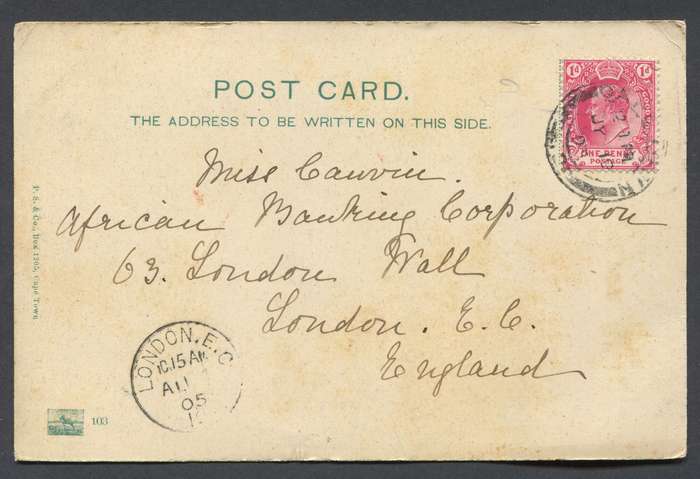 POST CARD.
THE ADDRESS TO BE WRITTEN ON THIS SIDE.
1d 1d
ONE PENNY
POSTAGE
Miss Cauvin.
African Banking Corporation
63. London Wall
London. E.C.
England
P. S. & Co., Box 1205, Cape Town
LONDON. E.C
10.15 AM
AU
05
103